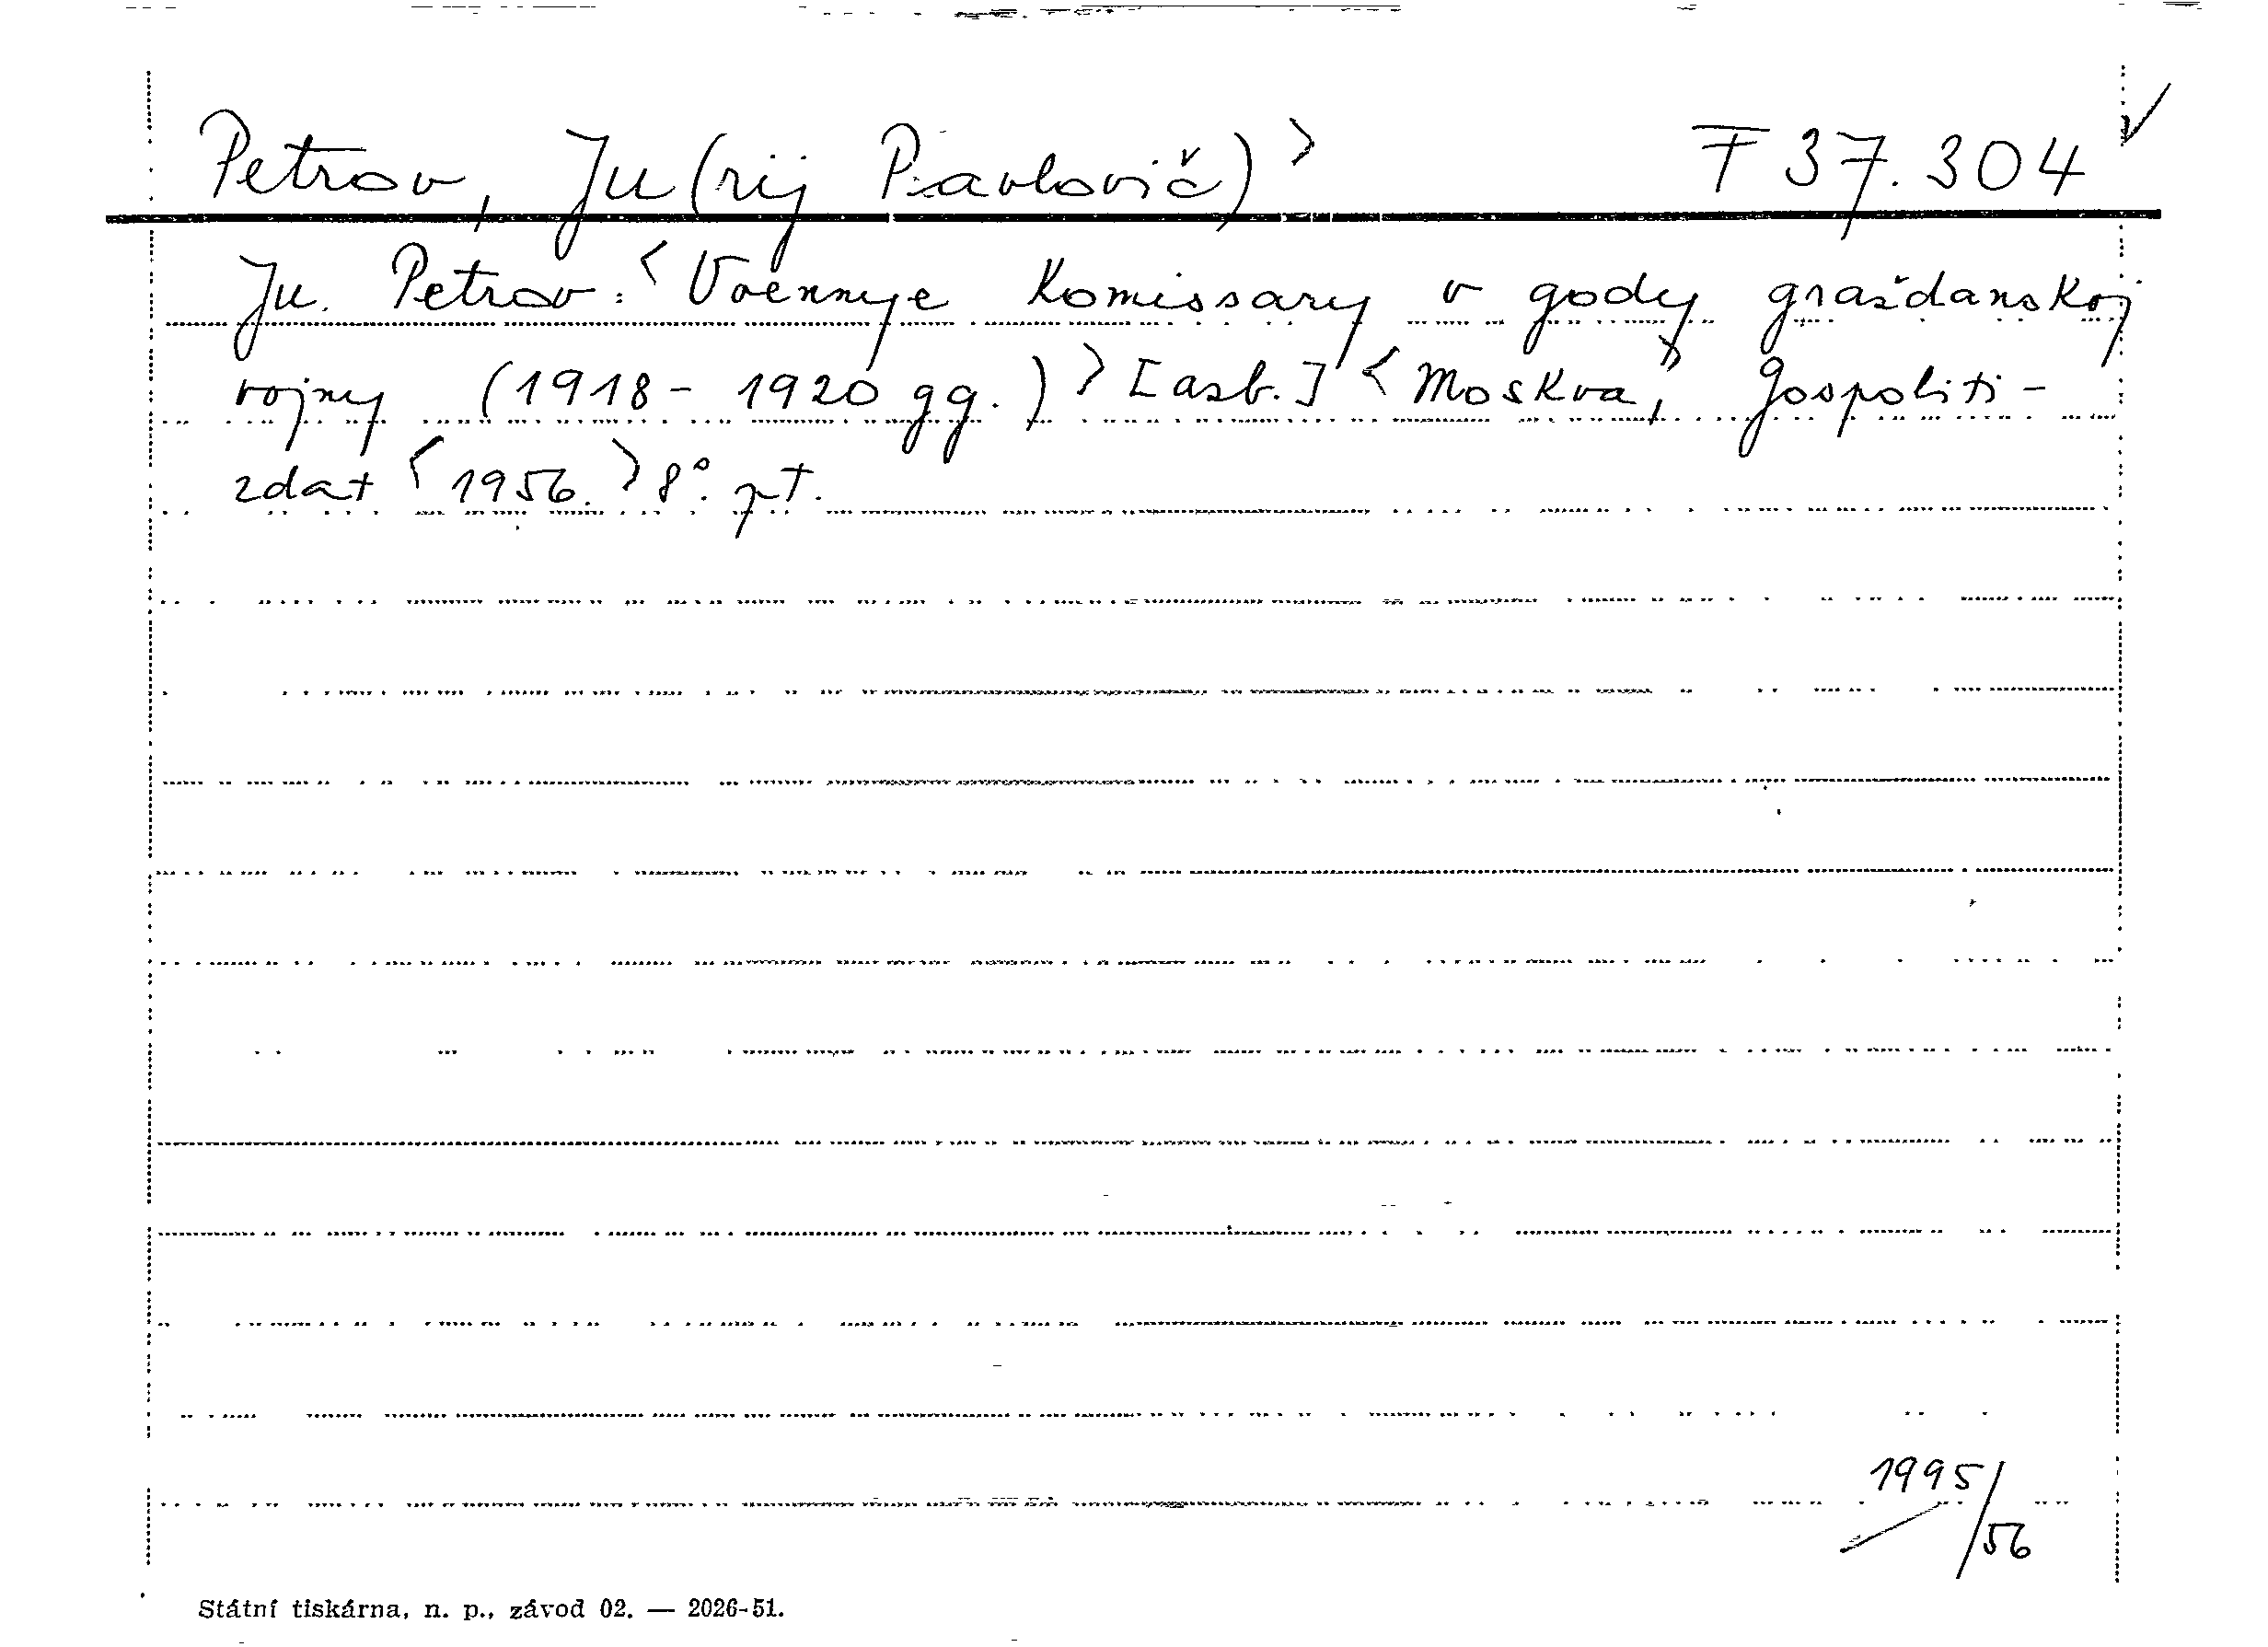 Petrov, Ju(rij Pavlovič)> F 37.304 ✓
Ju. Petrov: <Voennye komissary v gody graždanskoj
vojny (1918-1920 gg.)> [asb.] <Moskva,> Gospoliti-
zdat <1956.> 8°. pt.
1995/56
Státní tiskárna, n. p., závod 02. — 2026-51.